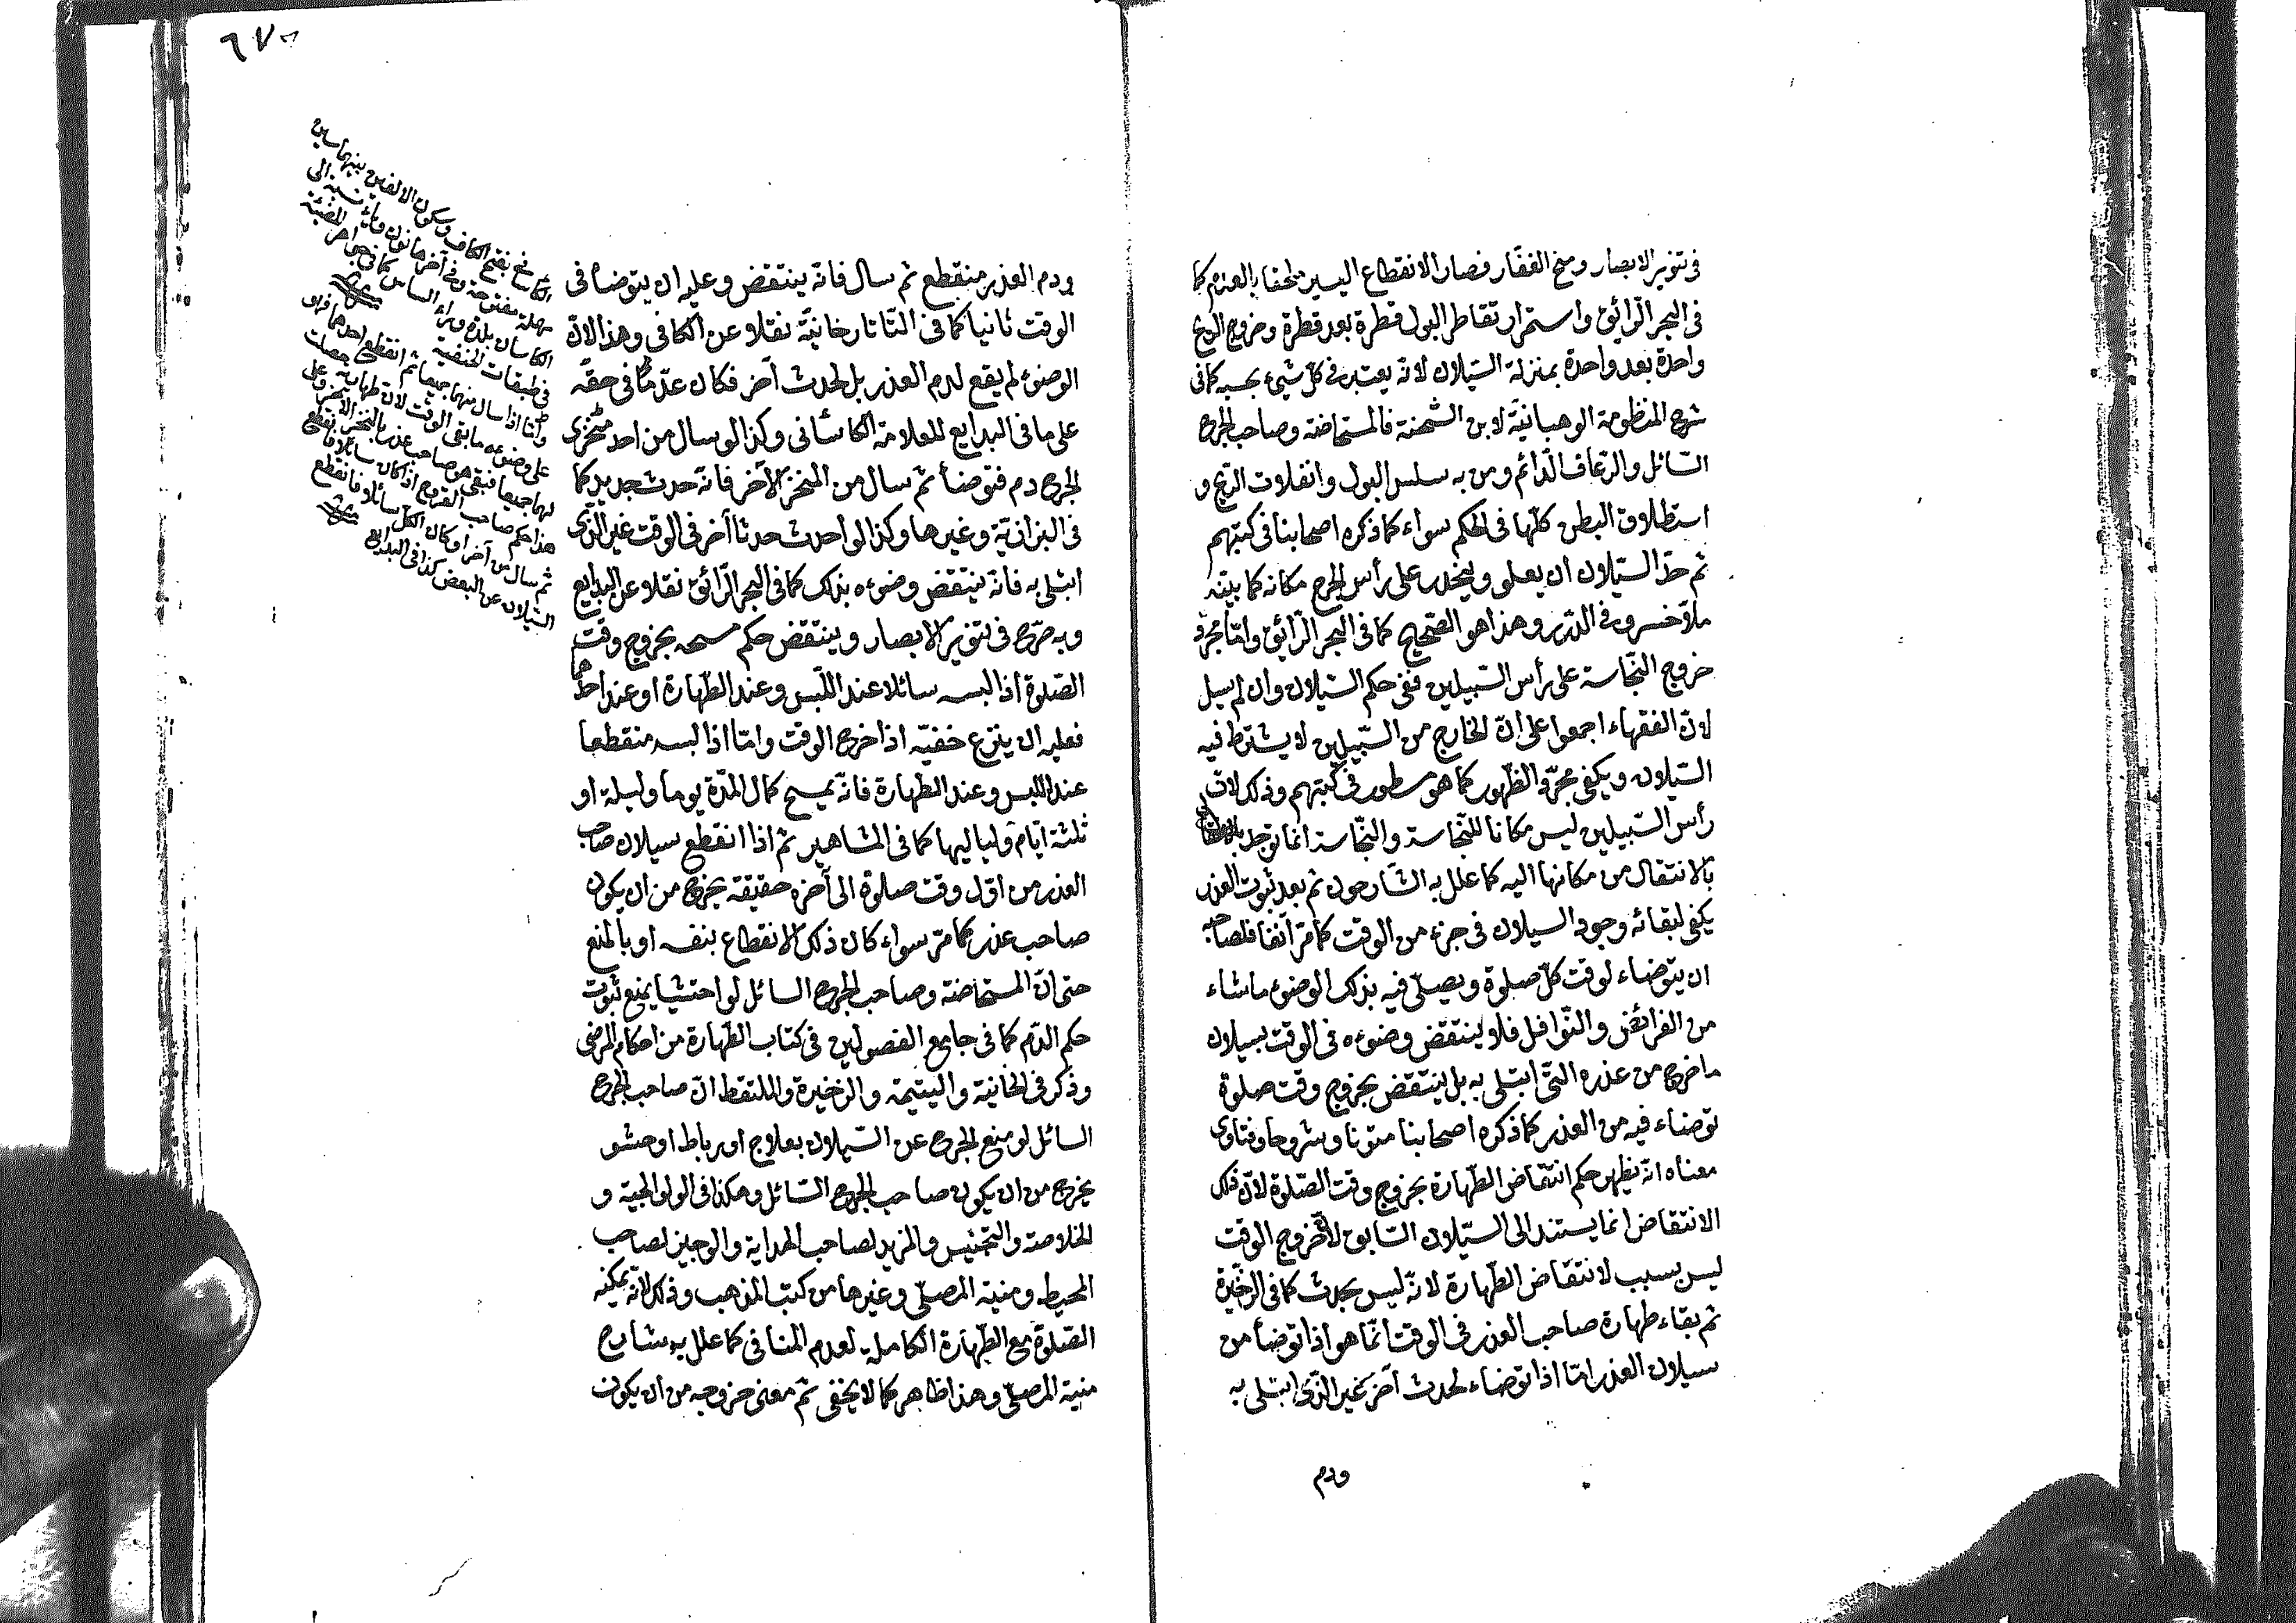 في تنوير الابصار ومنح الغفار فصار الانقطاع اليسير ملحقا بالعدم كما
في البحر الرّائق واستمرار تقاطر البول قطرة بعد قطرة وخروج الريح
واحدة بعد واحدة بمنزلة السّيلان لانه يعتبر في كلّ شيئ بحسبه كما في
شرح المنظومة الوهبانيّة لابن الشحنة فالمستحاضة وصاحب الجرح
السّائل والرّعاف الدّائم ومن به سلس البول وانفلات الرّيح و
استطلاق البطن كلّها في الحكم سواء كما ذكره اصحابنا في كتبهم
ثم حدّ السّيلان أن يعلو وينحدر على رأس الجرح مكانه كما بيّنه
ملاّ خسرو في الدّرر وهذا هو الصّحيح كما في البحر الرّائق وامّا مجرّد
خروج النّجاسة على رأس السّبيلين ففي حكم السّيلان وان لم يسل
لانّ الفقهاء اجمعوا على انّ الخارج من السّبيلين لا يشترط فيه
السّيلان ويكفي مجرّد الظّهور كما هو مسطور في كتبهم وذلك لانّ
رأس السّبيلين ليس مكانا للنّجاسة والنّجاسة انما توجد
بالانتقال من مكانها اليه كما علل به الشّارحون ثم بعد ثبوت العذر
يكفي لبقائه وجود السيلان في جزء من الوقت كما مرّ آنفا فلصاحبه
ان يتوضاء لوقت كلّ صلوة ويصلّي فيه بذلك الوضوء ما شاء
من الفرائض والنّوافل فلا ينتقض وضوءه في الوقت بسيلان
ما خرج من عذره التي ابتلي به بل ينتقض بخروج وقت صلوة
توضاء فيه من العذر كما ذكره اصحابنا متونا وشروحا وفتاوى
معناه انّه يظهر حكم انتقاض الطّهارة بخروج وقت الصّلوة لانّ ذلك
الانتقاض انما يستند الى السّيلان السّابق لا لخروج الوقت
ليس بسبب لانتقاض الطّهارة لانّه ليس بحدث كما في الذّخيرة
ثم بقاء طهارة صاحب العذر في الوقت انّما هو اذا توضأ من
سيلان العذر امّا اذا توضاء لحدث آخر غير الذّي ابتلي به
ودم
ودم العذر منقطع ثم سال فانّه ينتقض وعليه ان يتوضأ في
الوقت ثانيا كما في التّاتارخانيّة نقلا عن الكافي وهذا لانّ
الوضوء لم يقع لدم العذر بل لحدث آخر فكان عدمًا في حقّه
على ما في البدايع للعلامة الكاشاني وكذا لو سال من احد منخري
لجرح دم فتوضأ ثم سال من المنخر الآخر فانّه حدث جديد كما
في البزازيّة وغيرها وكذا لو احدث حدثا آخر في الوقت غير الذّي
ابتلي به فانّه ينتقض وضوءه بذلك كما في البحر الرّائق نقلا عن البدايع
وبه صرّح في تنوير الابصار وينتقض حكم مسحه بخروج وقت
الصّلوة اذا لبسه سائلا عند اللّبس وعند الطّهارة او عند احدهما
فعليه ان ينزع خفيّه اذا خرج الوقت وامّا اذا لبسه منقطعا
عند اللبس وعند الطّهارة فانّه يمسح كمال المدّة يوما وليلة او
ثلثة ايّام ولياليها كما في المشاهير ثم اذا انقطع سيلان صاحب
العذر من اوّل وقت صلوة الى آخره حقيقة يخرج من ان يكون
صاحب عذر كما مرّ سواء كان ذلك الانقطاع بنفسه او بالمنع
حتى انّ المستحاضة وصاحب الجرح السائل لو احتشيا يمنع ثبوت
حكم الدّم كما في جامع الفصولين في كتاب الطّهارة من احكام المرضى
وذكر في الخانية واليتيمة والذخيرة والملتقط انّ صاحب الجرح
السائل لو منع الجرح عن السّيلان بعلاج او رباط او حشو
يخرج من ان يكون صاحب الجرح السّائل وهكذا في الولوالجية و
الخلاصة والتّجنيس والمزيد لصاحب الهداية والوجيز لصاحب
المحيط ومنية المصلّي وغيرها من كتب المذهب وذلك لانّه يمكنه
الصّلوة مع الطّهارة الكاملة لعدم المنافي كما علل به شارح
منية المصلّي وهذا ظاهر كما لا يخفى ثم معنى خروجه من ان يكون
بفتح الكاف وسكون الالفين بينهما سين
مهملة مفتوحة وفي آخرها نون وياء نسبة الى
الكاسان بلدة وراء الشاش كما في جواهر المضيئة
في طبقات الحنفية
وامّا اذا سال منهما جميعا ثم انقطع احدهما فهو
على وضوءه ما بقي الوقت لان طهارته حصلت
لهما جميعا فبقي هو صاحب عذر بالمنخر الآخر وعلى
هذا حكم صاحب القروح اذا كان سائلا فانقطع
ثم سال من آخر او كان الكلّ سائلا فانقطع
السّيلان عن البعض كذا في البدايع